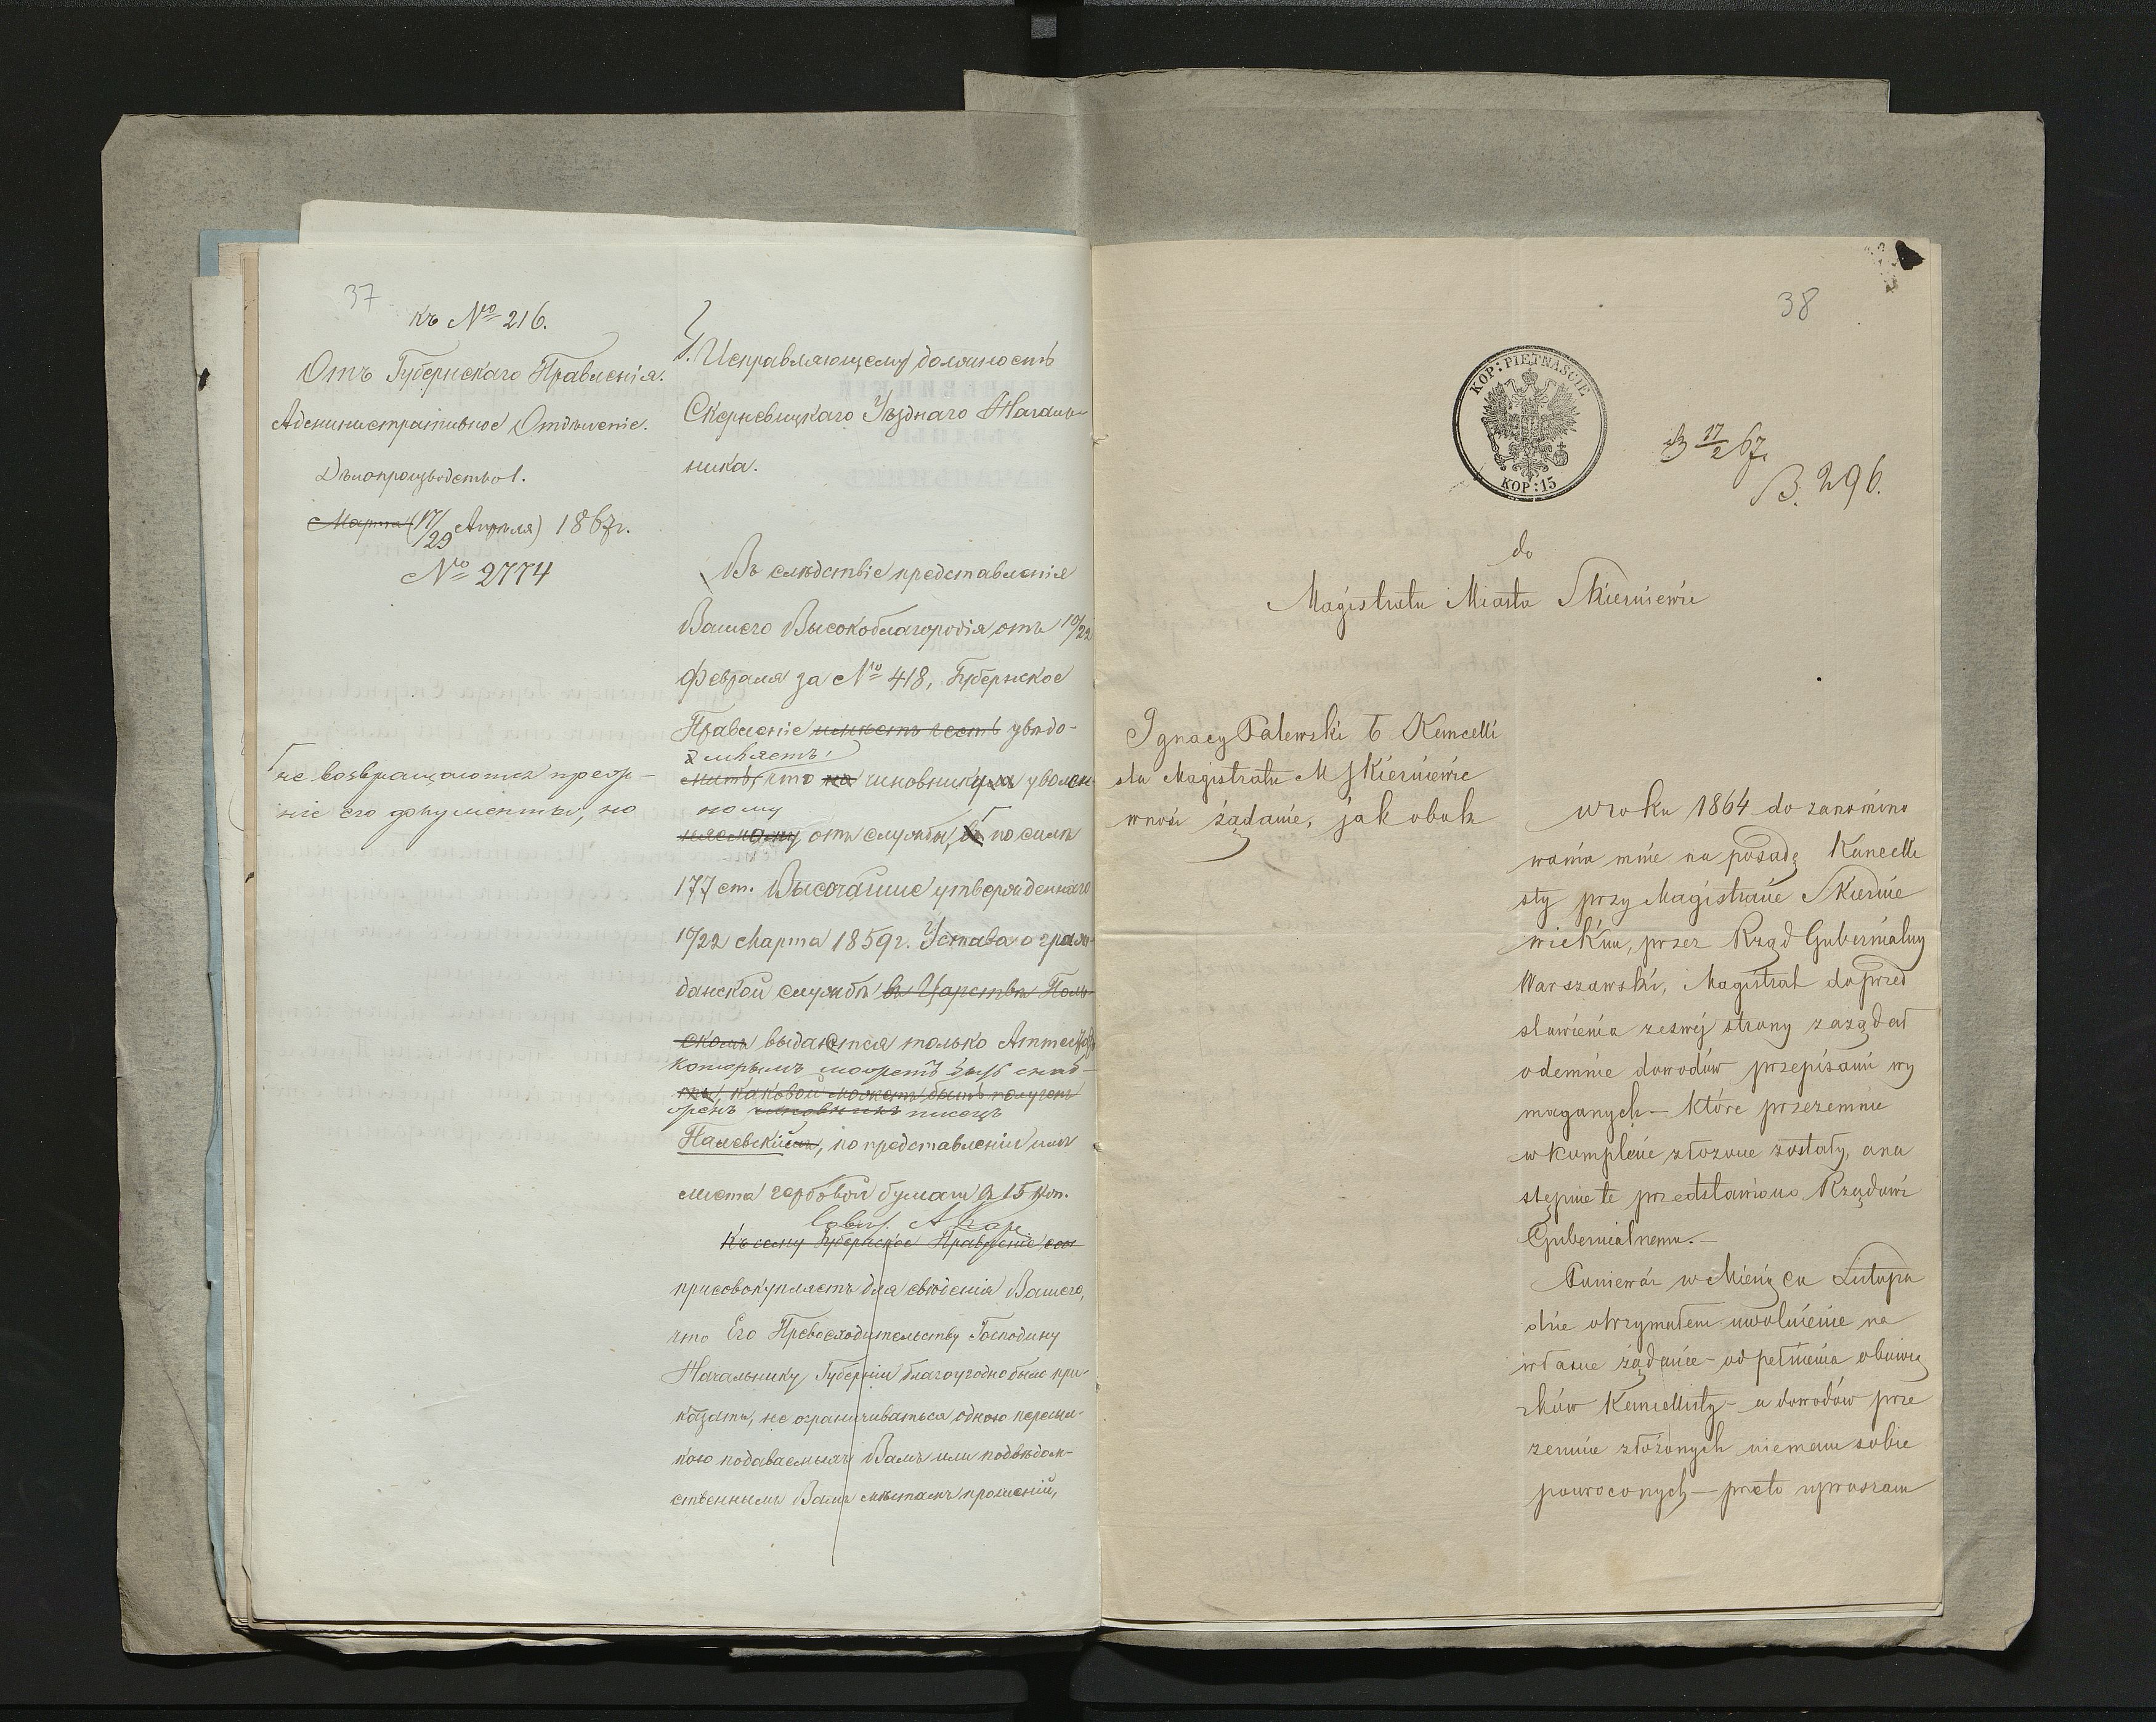 37
къ № 216.
Отъ Губернскаго Правленія.
Административное Отдѣленіе.
Дѣлопроизводство 1.
Марта (17/29 Апрѣля) 1867 г.
№ 2774
не возвращаются преж-
ніе его документы, но
Г. Исправляющему должность
Скерневицкаго Уѣзднаго Началь-
ника.
Въ слѣдствіе представленія
Вашего Высокоблагородія, отъ 10/22
Февраля за № 418, Губернское
Правленіе имѣетъ честь увѣдо-
мляетъ
мить, что на чиновнику уволен-
ному
отъ службы, по силѣ
177 ст. Высочайше утвержденнаго
10/22 Марта 1859 г. Устава о граж-
данской службѣ въ Царствѣ Поль-
скомъ выдается только Аттестатъ
которымъ можетъ быть снаб-
каковой можетъ быть полученъ
женъ чиновникъ писецъ
Палевскій, по представленіи имъ
листа гербовой бумаги в 15 коп.
Къ сему Губернское Правленіе
присовокупляетъ для свѣдѣнія Вашего,
что Его Превосходительству Господину
Начальнику Губерніи благоугодно было при-
казать, не ограничиваться одною пересыл-
кою подаваемыхъ Вамъ или подвѣдом-
ственнымъ Вамъ мѣстамъ прошеній,
38
KOP: PIĘTNAŚCIE
KOP: 15
17/2 67
B. 296.
do
Magistratu Miasta Skierniewic
Ignacy Palewski b Kancelli
sta Magistratu M Skierniewic
wnosi żądanie, jak obok
w roku 1864 do zanomino
wania mnie na posadę Kancelli
sty przy Magistracie Skiernie
wickim, przez Rząd Gubernialny
Warszawski, Magistrat do przed
stawienia ze swej strony zażądał
odemnie dowodów przepisami wy
maganych – które przezemnie
w komplecie złożone zostały, a na
stępnie te przedstawiono Rządowi
Gubernialnemu. –
Ponieważ w Miesiącu Listopa
dzie otrzymałem uwolnienie na
własne żądanie – od pełnienia obowią
zków Kancellisty – a dowodów prze
zemnie złożonych niemam sobie
powroconych – przeto upraszam